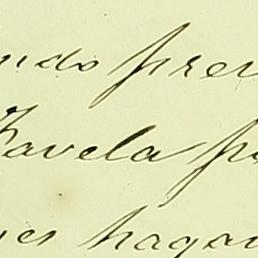 ndo pre
Favela p
es haga